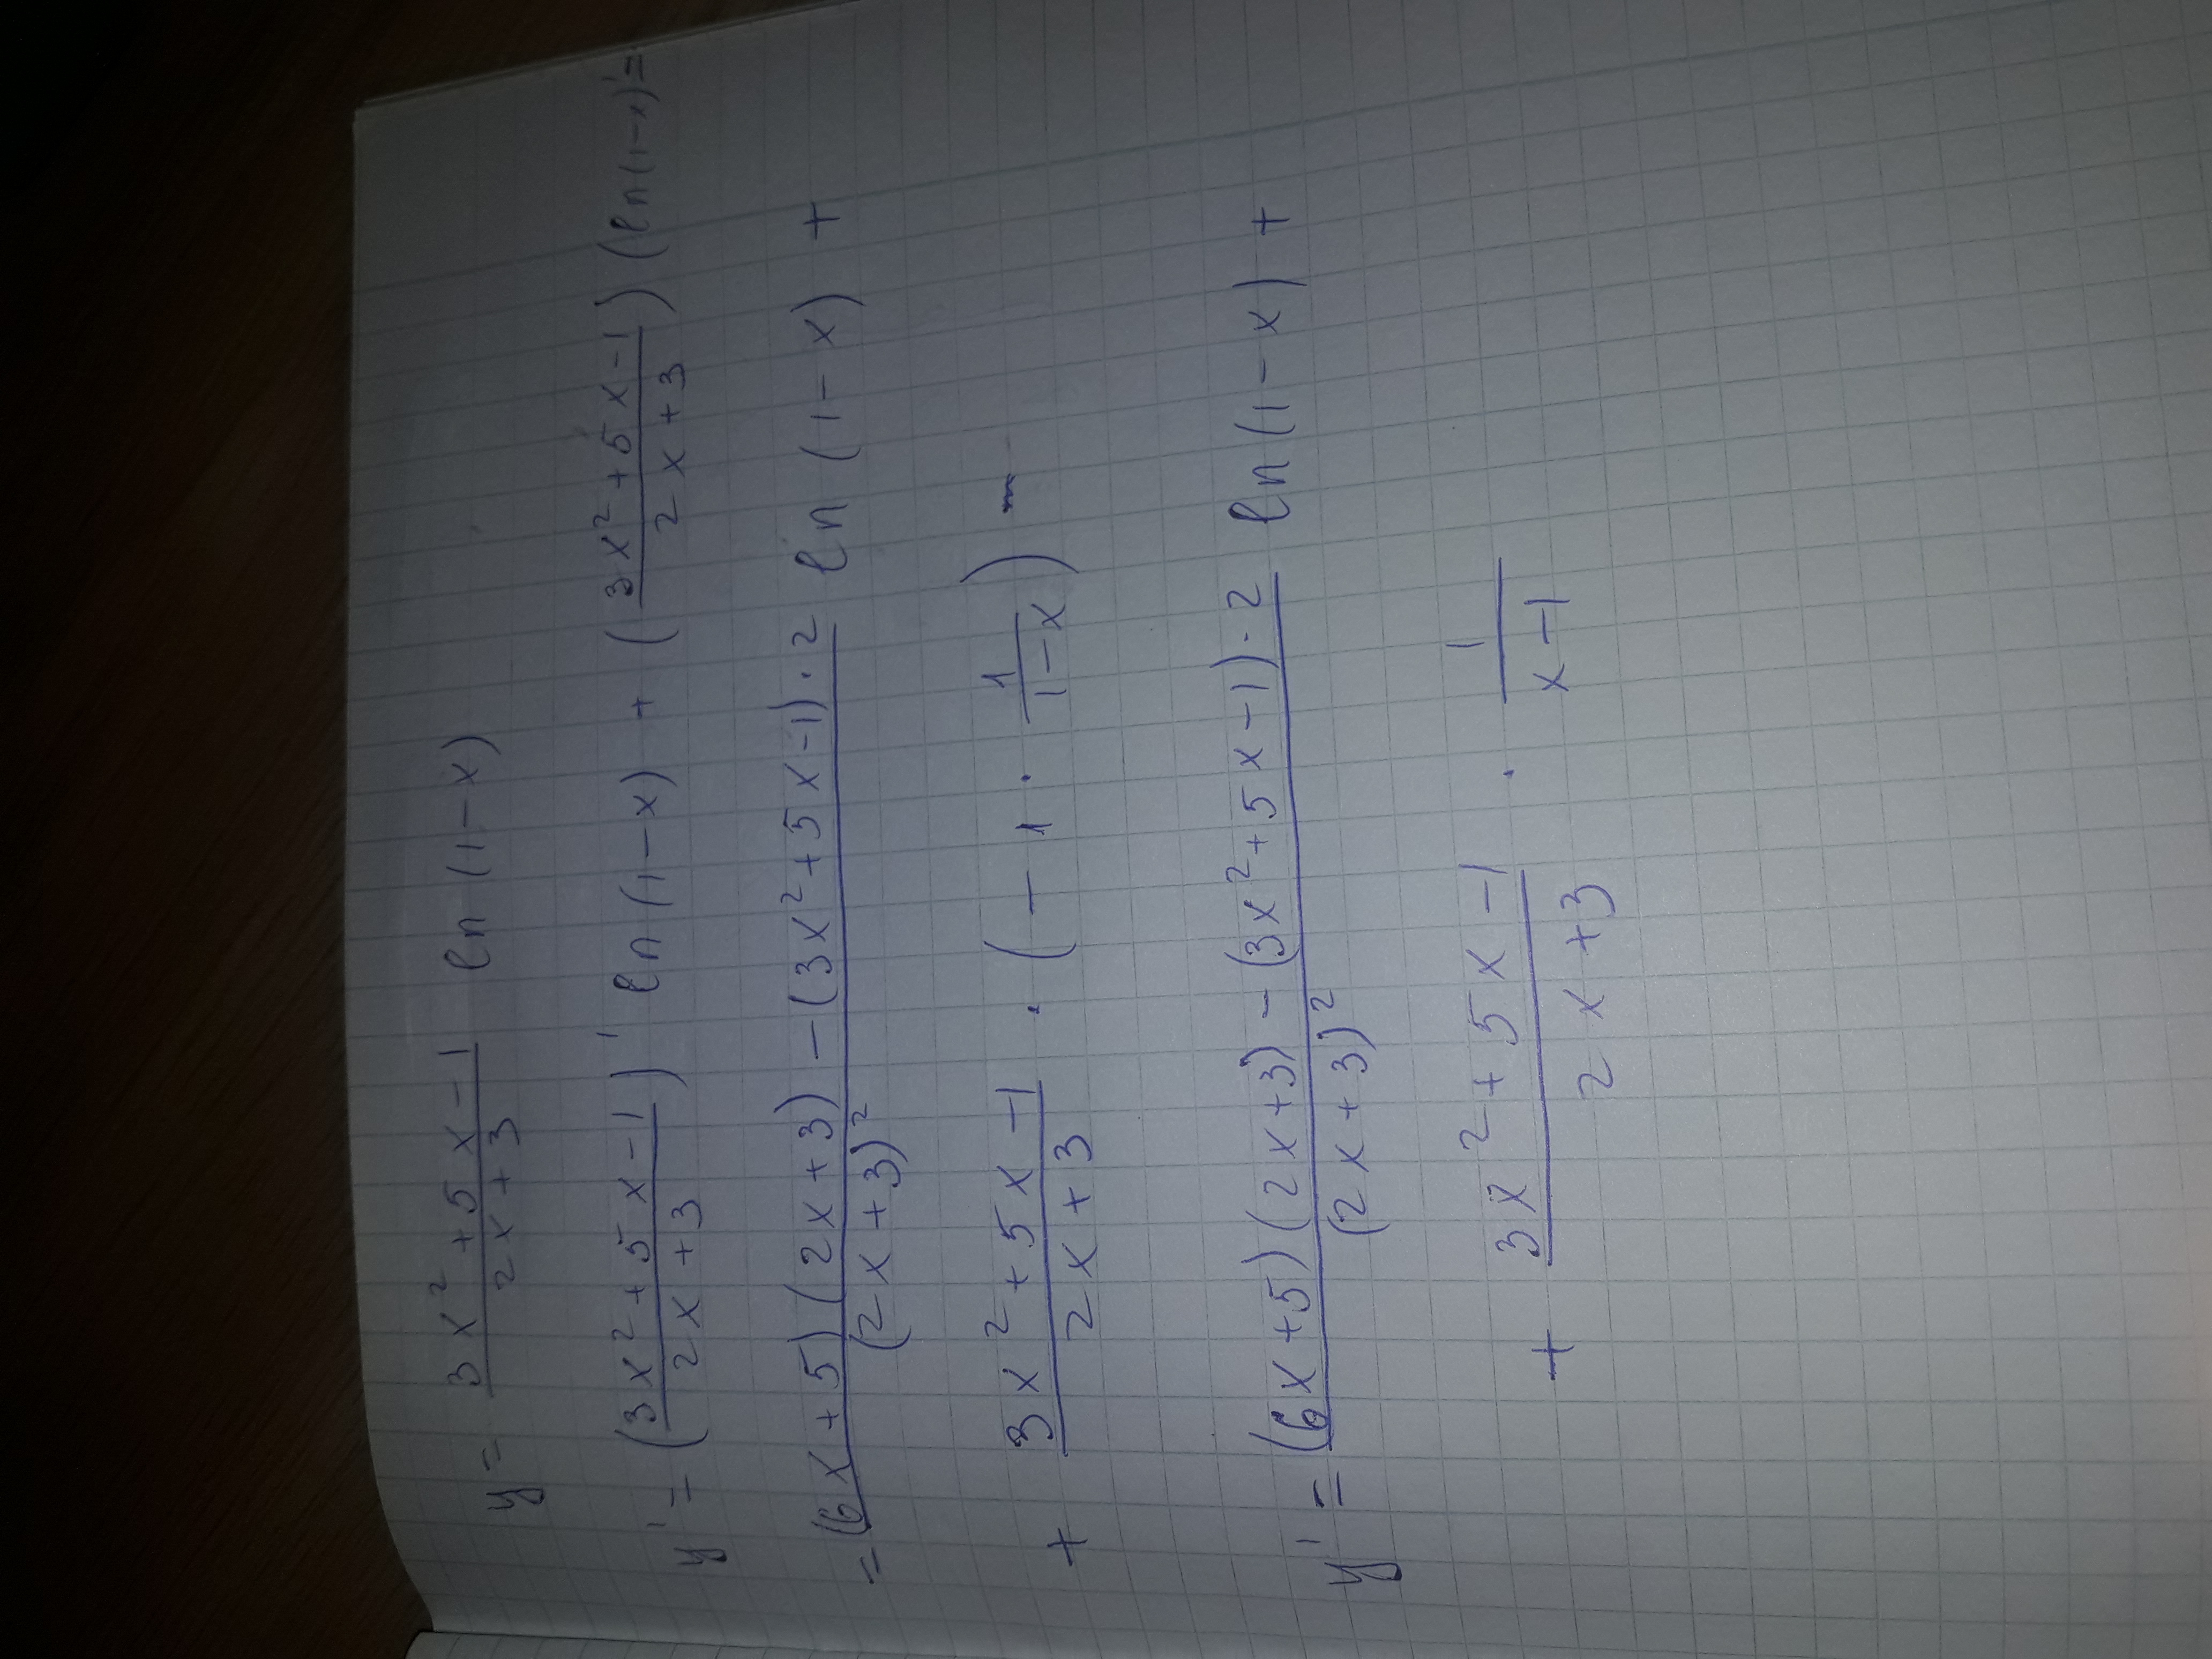 y = \frac{3x^2+5x-1}{2x+3} ln (1-x)
y' = (\frac{3x^2+5x-1}{2x+3})' ln (1-x) + (\frac{3x^2+5x-1}{2x+3}) (ln (1-x)' =
= \frac{(6x+5)(2x+3) - (3x^2+5x-1)·2}{(2x+3)^2} ln (1-x) +
+ \frac{3x^2+5x-1}{2x+3} · (-1 · \frac{1}{1-x}) -
y' = \frac{(6x+5)(2x+3) - (3x^2+5x-1)·2}{(2x+3)^2} ln (1-x) +
+ \frac{3x^2+5x-1}{2x+3} · \frac{1}{x-1}